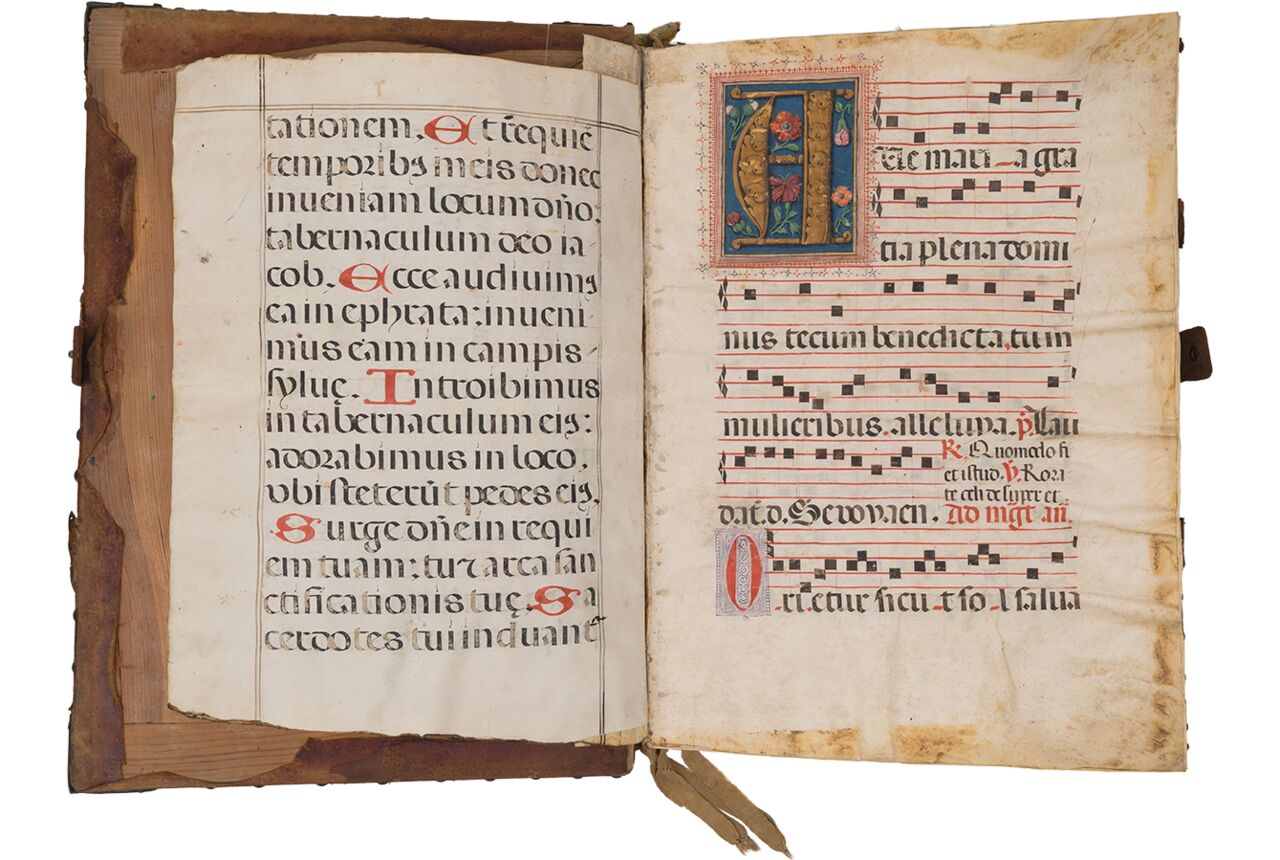 tationem. Et requie
temporibꝰ meis donec
inueniam locum dn̄o:
tabernaculum deo ia-
cob. Ecce audiuimꝰ
ea in ephrata: inueni-
m'us eam in campis
syluę. Introibimus
in tabernaculum eiꝰ:
adorabimus in loco,
vbi steterūt pedes eiꝰ.
Surge dn̄e in requi
em tuam: tu ⁊ arca san
ctificationis tuę. Sa
cerdotes tui induant̄
AUe mari-a gra
tia plena domi
nus tecum benedicta, tu in
mulieribus. alleluya. p̄. Lau
R. Quomodo fi
et istud. V̄. Rora
te celi desuper et
dat̄. d. Sevovaen. Ad mgt̄ an̄.
O-rietur sicu-t so-l salua